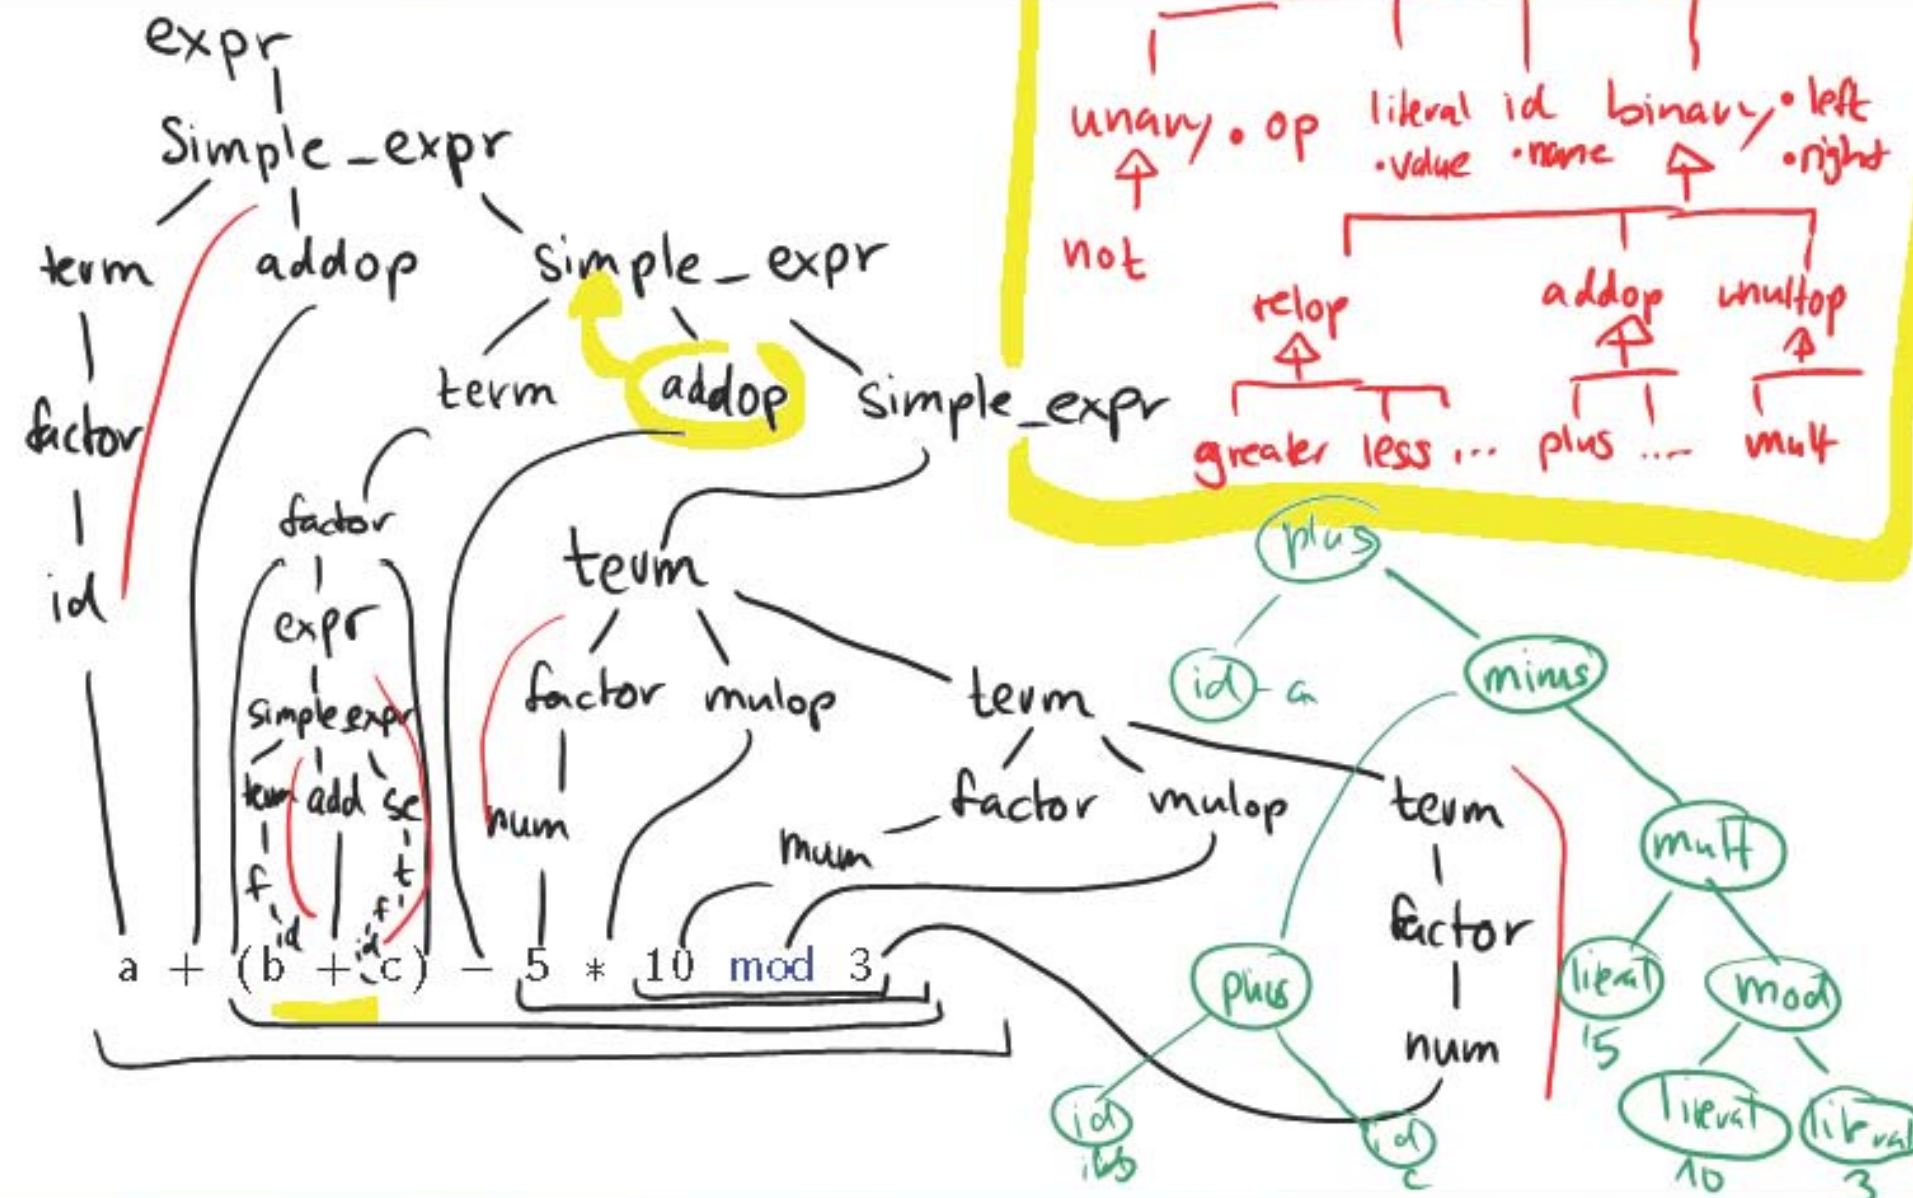 expr
Simple_expr
term addop simple_expr
factor term addop simple_expr
id factor term
expr factor mulop term
simple_expr num factor mulop term
term add se num factor
f t num
id f
id
a + (b + c) - 5 * 10 mod 3
unary • op literal id binary • left
• value • name • right
not
relop addop multop
greater less ... plus ... mult
plus
id - a minus
mult
plus literal mod
5
id id literal literal
c 10 3